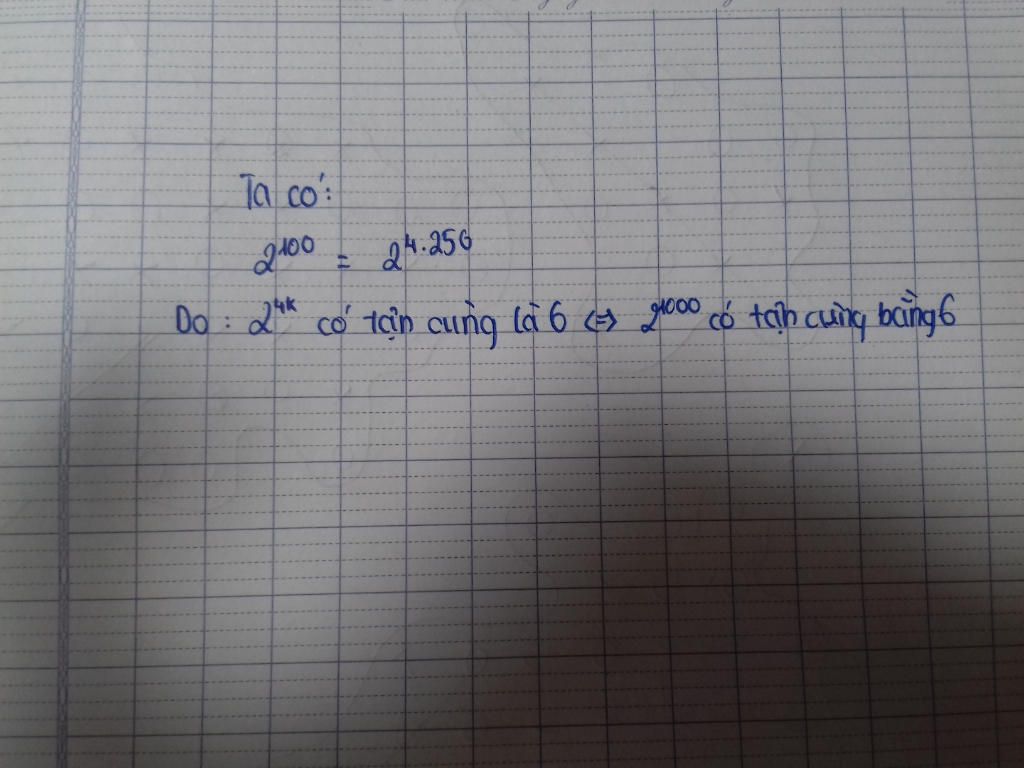 Ta có:
2^100 = 2^4.256
Do: 2^4k có tận cùng là 6 <=> 2^1000 có tận cùng bằng 6